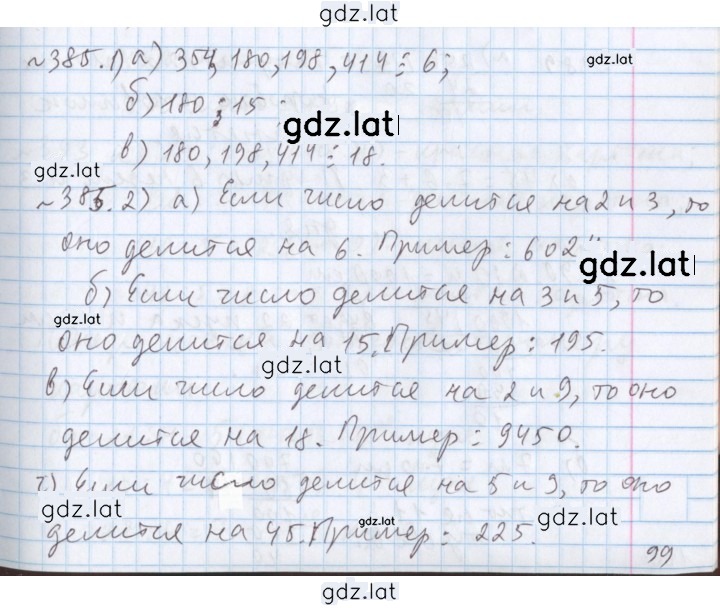 gdz.lat
№385.1) а) 354, 180, 198, 414 ⋮ 6;
gdz.lat
б) 180 ⋮ 15;
gdz.lat
в) 180, 198, 414 ⋮ 18.
gdz.lat
№385.2) а) Если число делится на 2 и 3, то
оно делится на 6. Пример: 602
gdz.lat
б) Если число делится на 3 и 5, то
gdz.lat
оно делится на 15. Пример: 195.
gdz.lat
в) Если число делится на 2 и 9, то оно
делится на 18. Пример: 9450.
г) Если число делится на 5 и 9, то оно
gdz.lat
gdz.lat
делится на 45. Пример: 225.
gdz.lat
99
gdz.lat